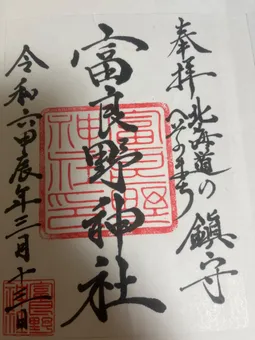 奉拝
北海道の
へそのまち
鎮守
富良野神社
富良野神社印
令和六甲辰年三月十三日